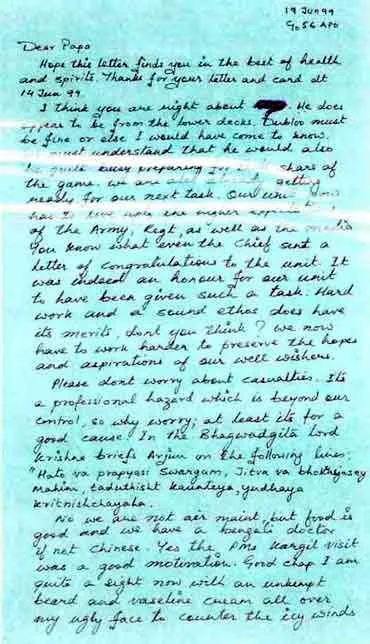 19 Jun 99
C/o 56 APO
Dear Papa
Hope this letter finds you in the best of health
and spirits. Thanks for your letter and card dt
14 Jun 99.
I think you are right about He does
appear to be from the lower decks. Dubloo must
be fine or else I would have come to know.
must understand that he would also
be quite busy preparing for share of
the game. We are also already getting
ready for our next task. Our unit now
has to live upto the higher
of the Army, Regt, as well as the media
You know what even the Chief sent a
letter of congratulations to the unit. It
was indeed an honour for our unit
to have been given such a task. Hard
work and a sound ethos does have
its merits, dont you think? We now
have to work harder to preserve the hopes
and aspirations of our well wishers.
Please dont worry about casualties. Its
a professional hazard which is beyond our
control, so why worry; at least its for a
good cause. In the Bhagwadgita Lord
Krishna briefs Arjun on the following lines.
"Hato va prapyasi Swargam, Jitva va bhokshyasey
Mahim, taduthisht Kaunteya, yudhaya
kritnishchayaha.
No we are not air maint, but food is
good and we have a bengali doctor
if not Chinese. Yes the PMs Kargil visit
was a good motivation. Good chap. I am
quite a sight now with an unkempt
beard and vaseline cream all over
my ugly face to counter the icy winds